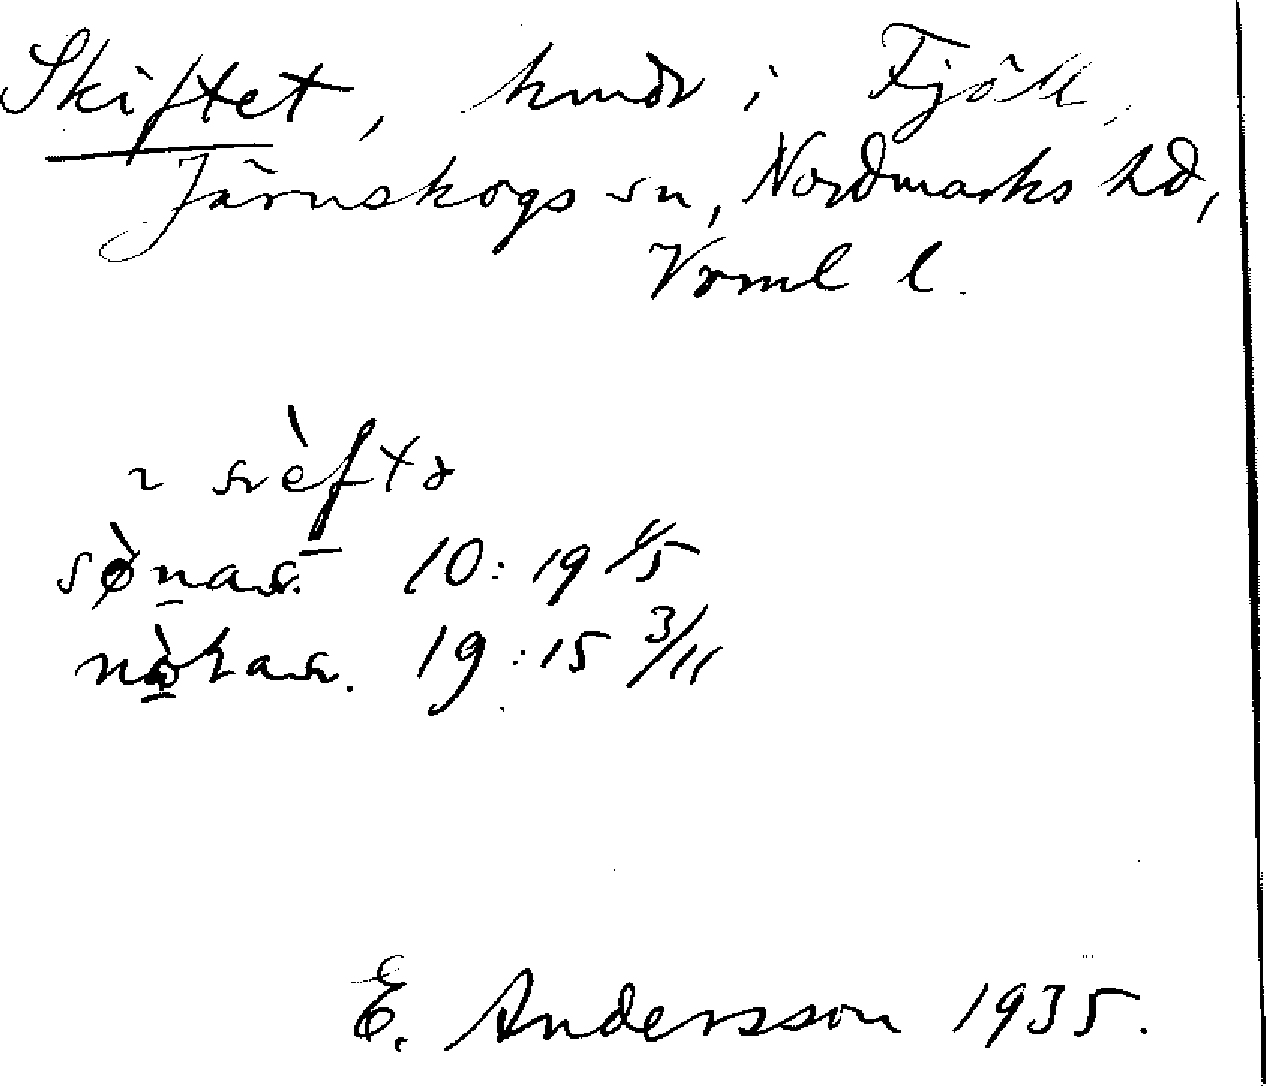 Skiftet, hmdr i Fjöll,
Järnskogs sn, Nordmarks hd,
Vrml l.
10:19 4/5
19:15 3/11
E. Andersson 1935.